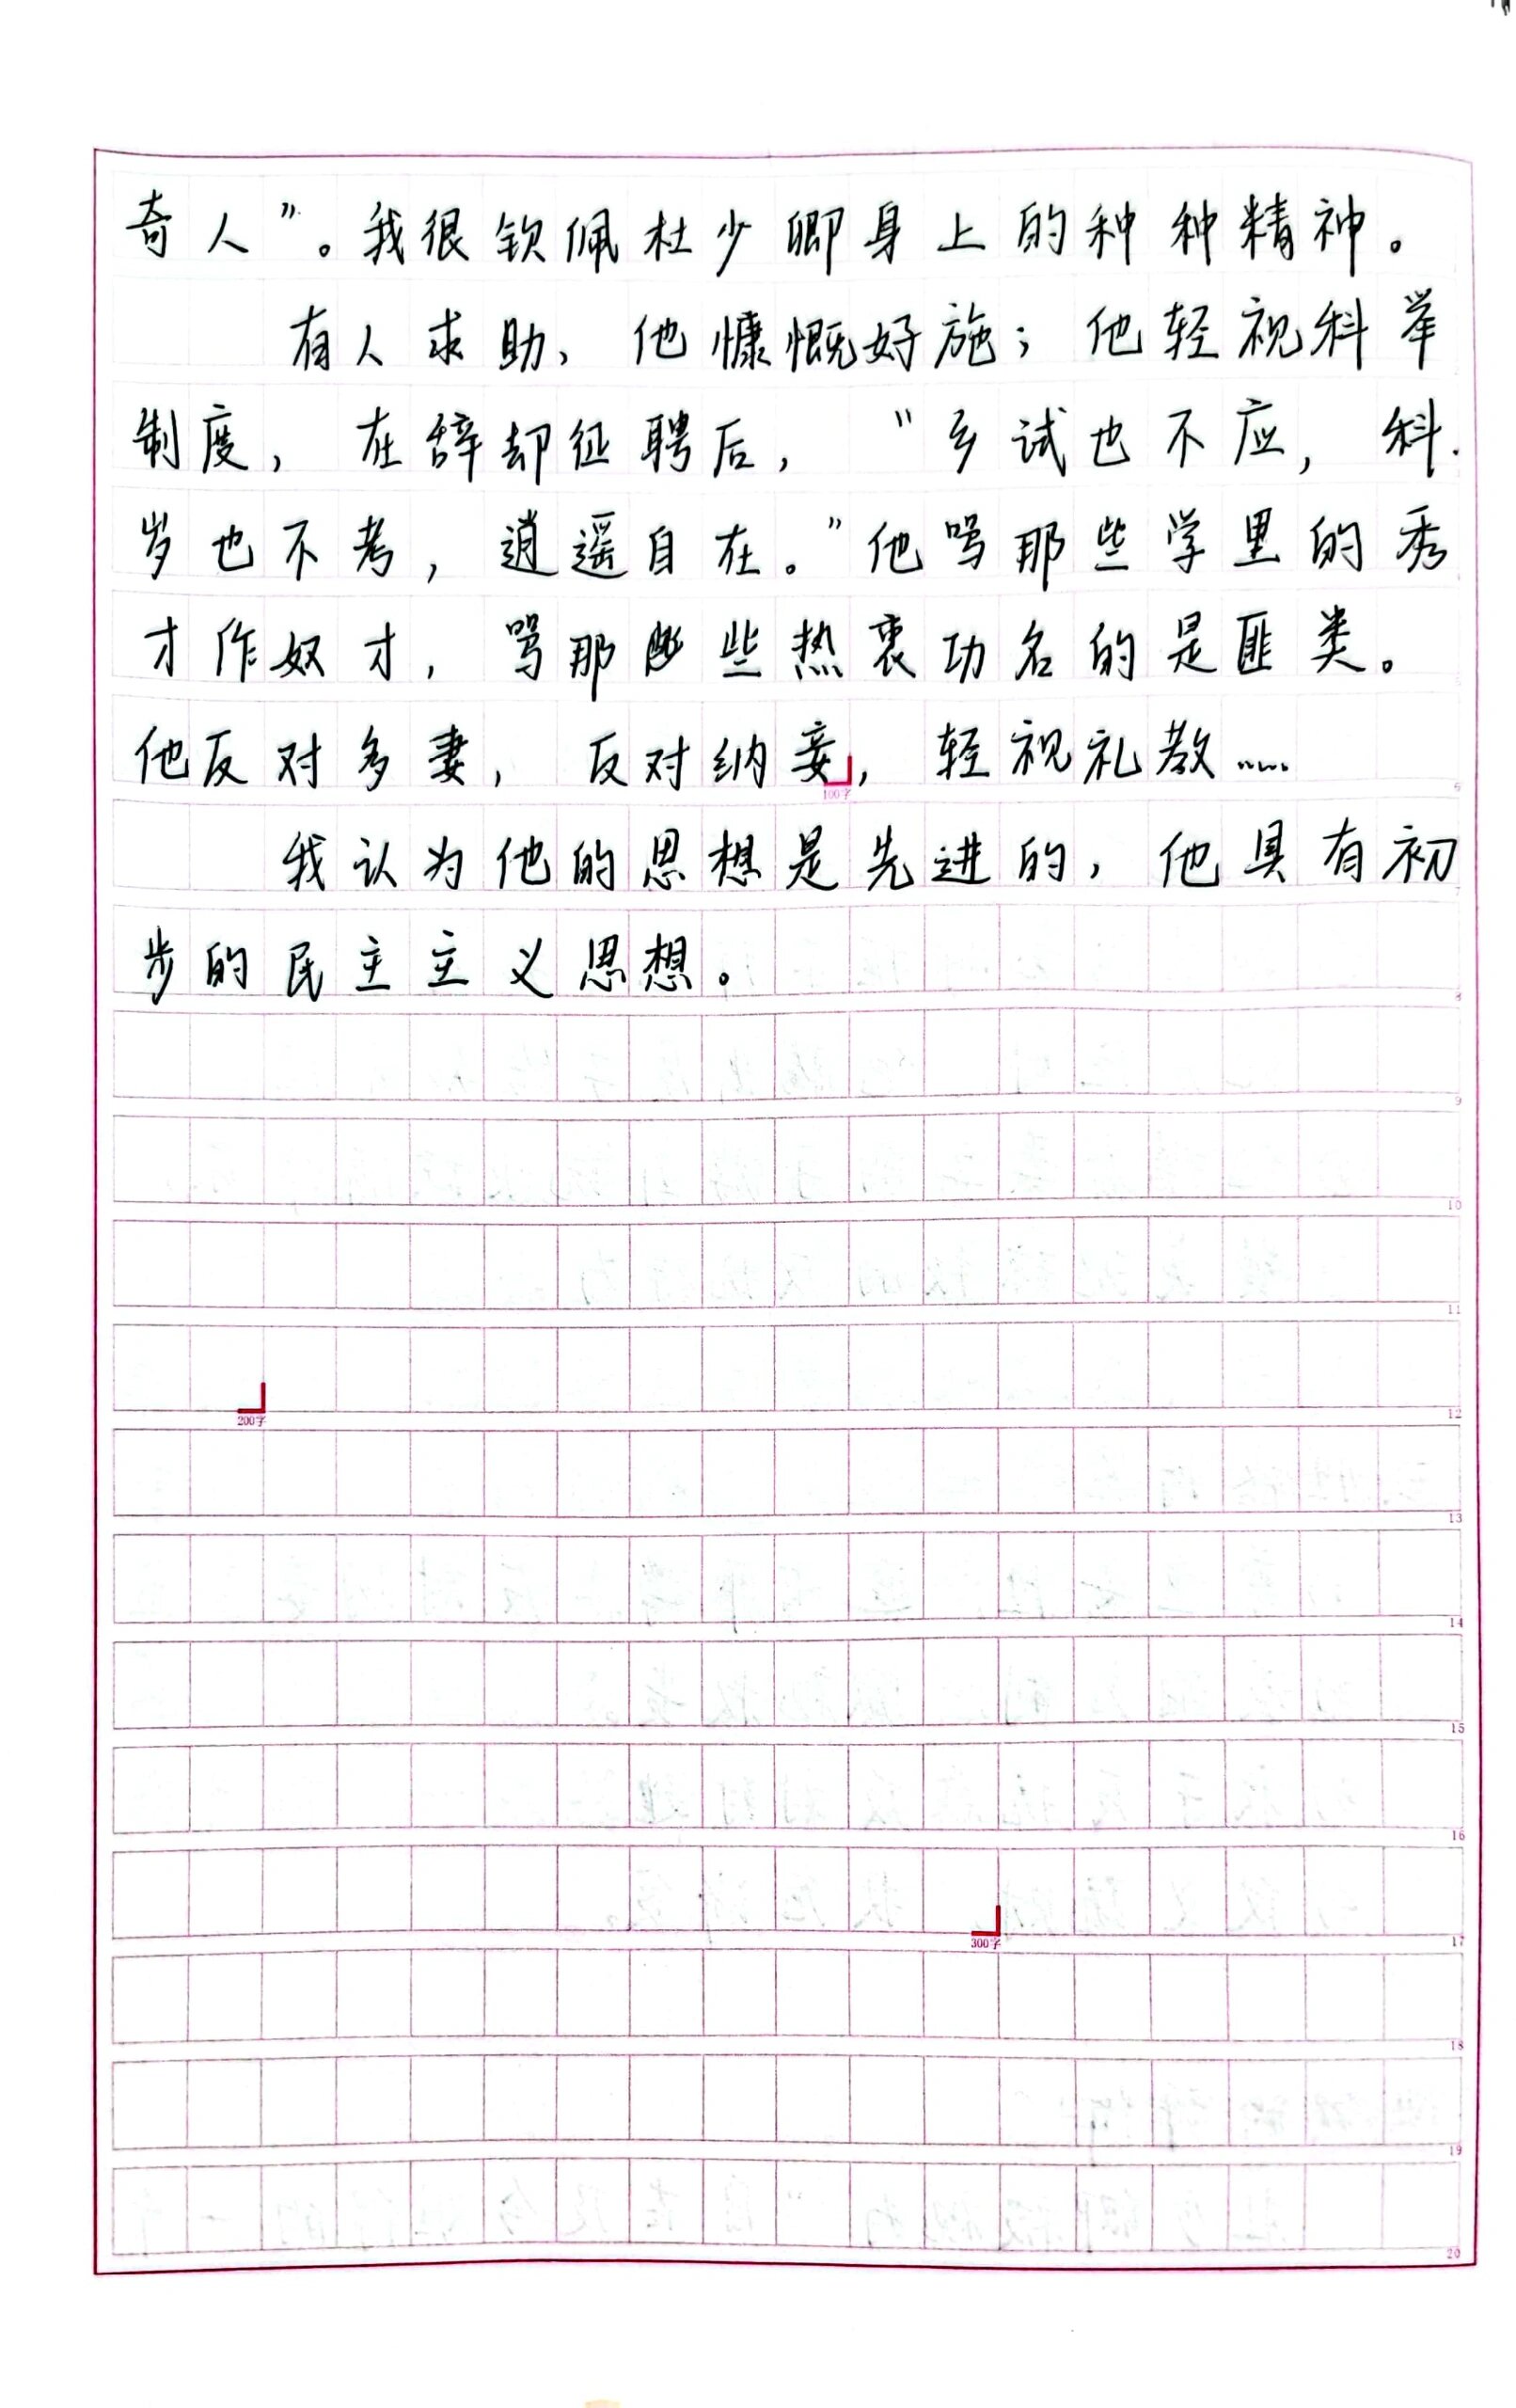 奇人”。我很钦佩杜少卿身上的种种精神。
有人求助、他慷慨好施；他轻视科举
制度，在辞却征聘后，“乡试也不应，科
岁也不考，逍遥自在。”他骂那些学里的秀
才作奴才，骂那些热衷功名的是匪类。
他反对多妻，反对纳妾，轻视礼教……
100字
我认为他的思想是先进的，他具有初
步的民主主义思想。
200字
300字
6
7
8
9
10
11
12
13
14
15
16
17
18
19
20